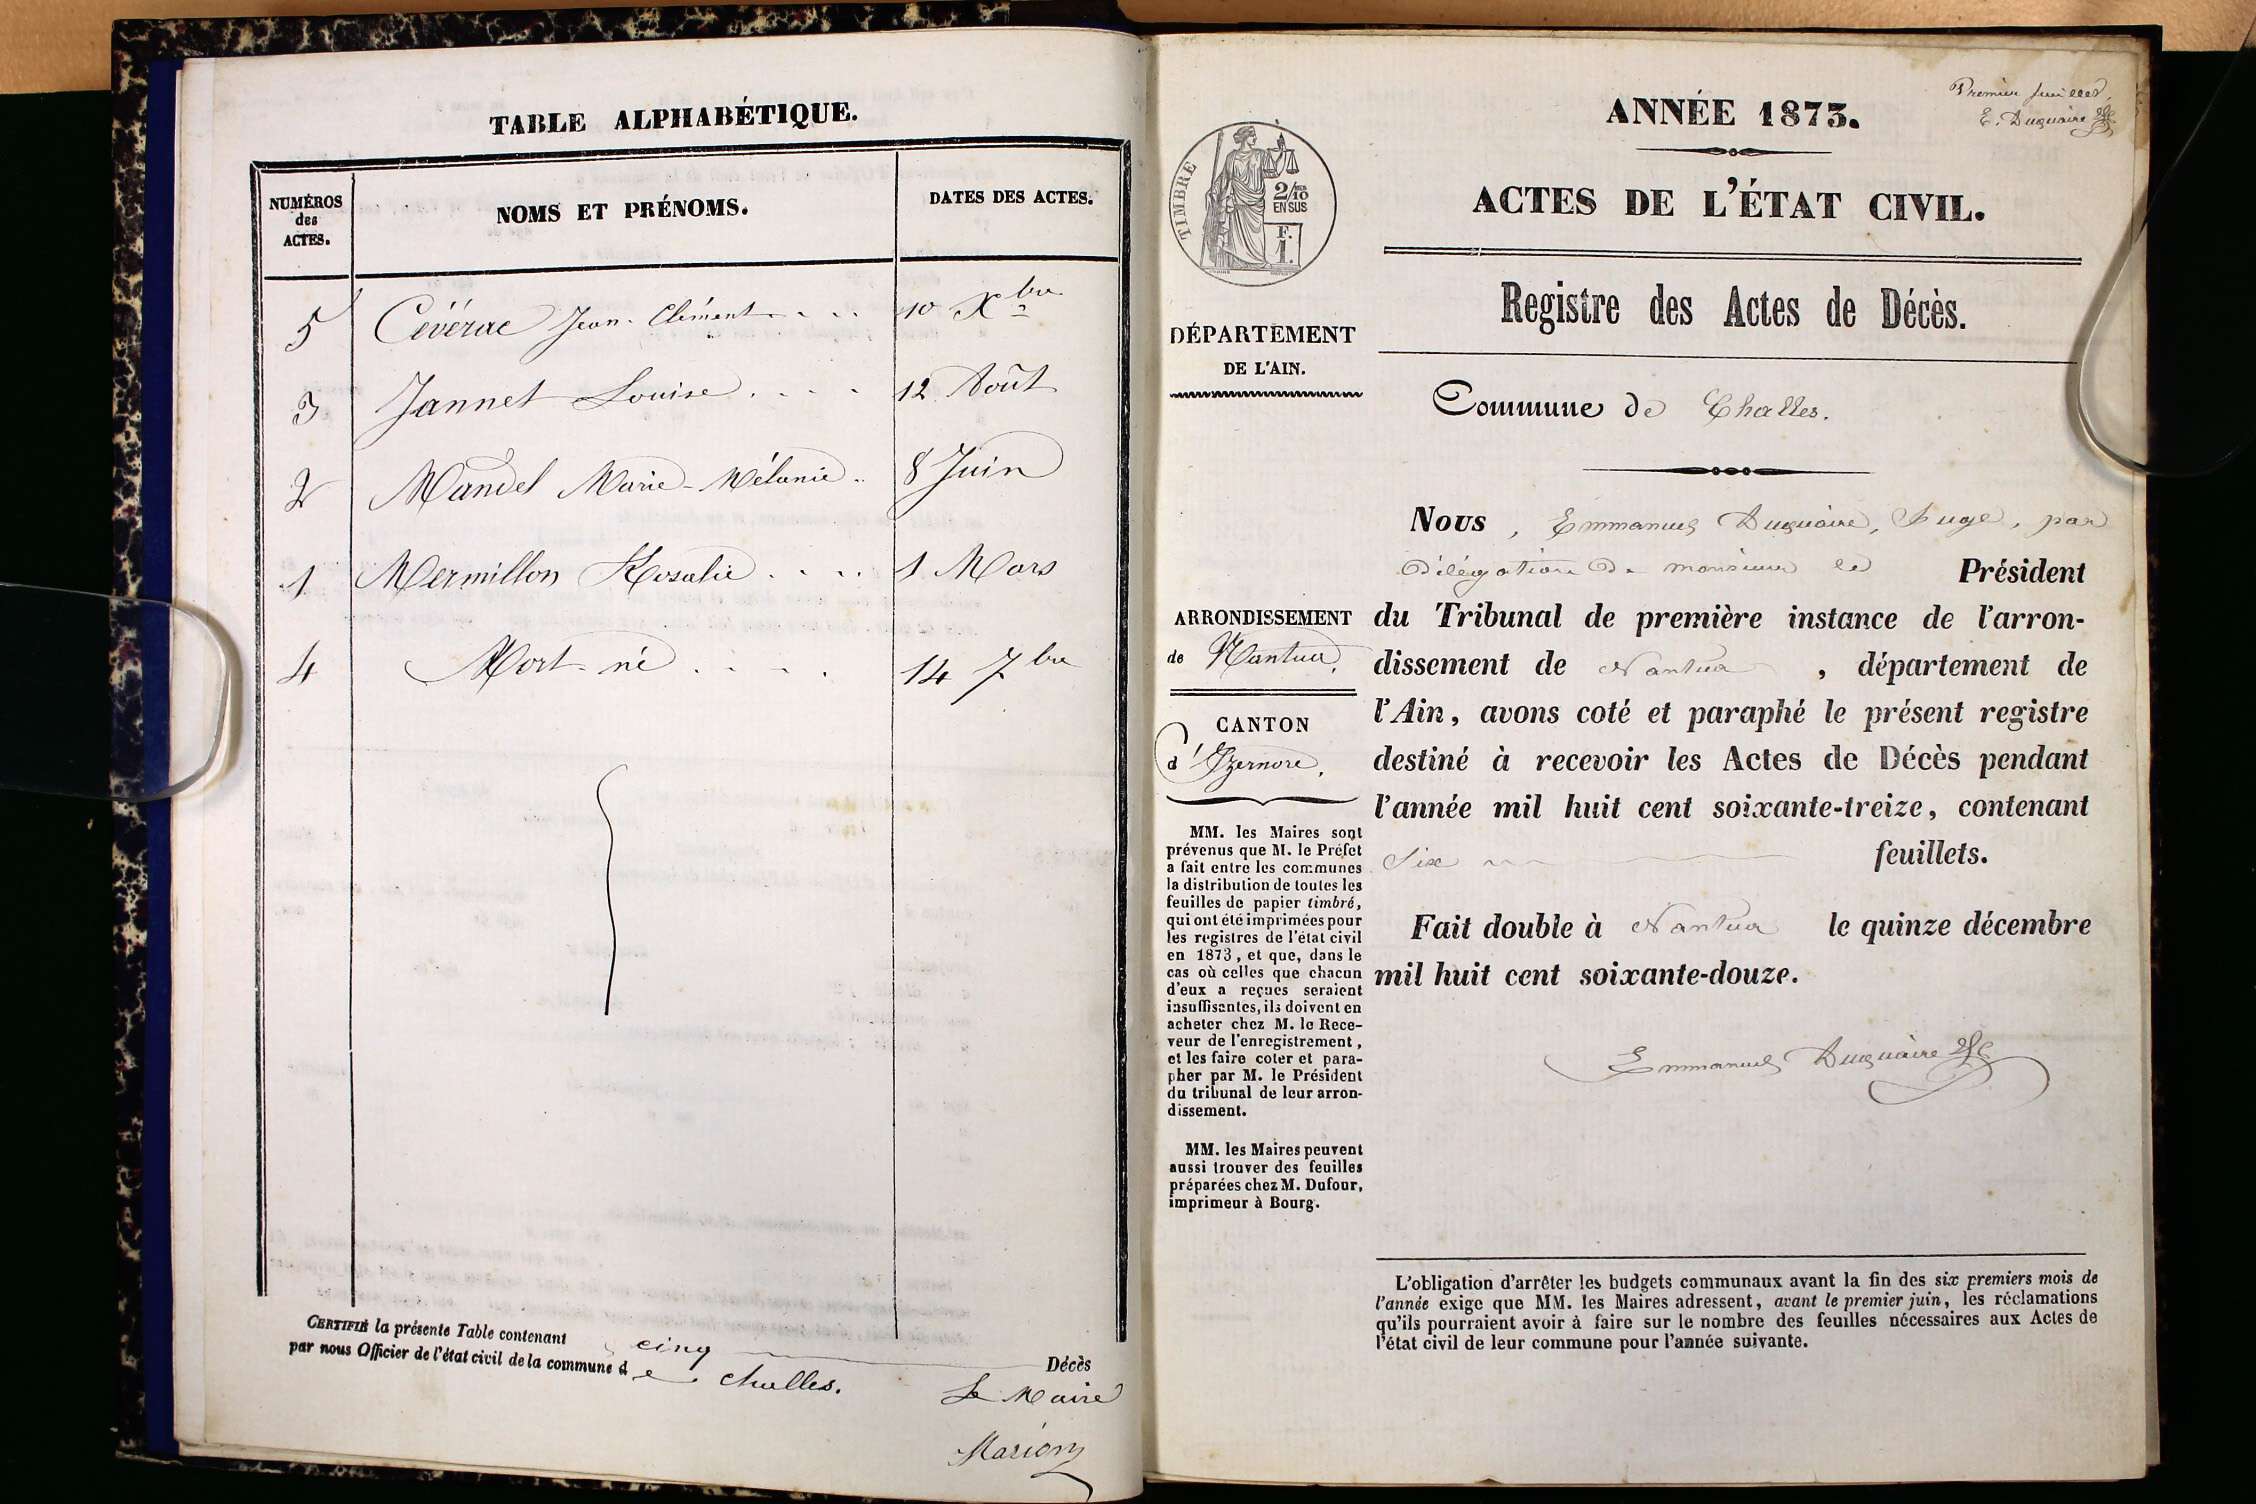 TABLE ALPHABÉTIQUE.
NUMÉROS
des
ACTES.
NOMS ET PRÉNOMS.
DATES DES ACTES.
5 Cévérac Jean-Clément . . . 10 Xbre
3 Jannet Louise . . . . 12 Août
2 Mandel Marie-Mélanie .. 8 Juin
1 Mermillon Rosalie . . . . 1 Mars
4 Mort-né . . . . 14 7bre
CERTIFIÉ la présente Table contenant cinq Décès
par nous Officier de l'état civil de la commune de Challes.
Le Maire
Marion
Premier feuillet,
E. Duquaire
ANNÉE 1873.
ACTES DE L'ÉTAT CIVIL.
TIMBRE
2/10
EN SUS
F.
1.
Registre des Actes de Décès.
DÉPARTEMENT
DE L'AIN.
Commune de Challes.
ARRONDISSEMENT
de Nantua.
CANTON
d'Izernore.
MM. les Maires sont
prévenus que M. le Préfet
a fait entre les communes
la distribution de toutes les
feuilles de papier timbré,
qui ont été imprimées pour
les registres de l'état civil
en 1873, et que, dans le
cas où celles que chacun
d'eux a reçues seraient
insuffisantes, ils doivent en
acheter chez M. le Rece-
veur de l'enregistrement,
et les faire coter et para-
pher par M. le Président
du tribunal de leur arron-
dissement.
MM. les Maires peuvent
aussi trouver des feuilles
préparées chez M. Dufour,
imprimeur à Bourg.
Nous, Emmanuel Duquaire, Juge, par
délégation de monsieur le Président
du Tribunal de première instance de l'arron-
dissement de Nantua, département de
l'Ain, avons coté et paraphé le présent registre
destiné à recevoir les Actes de Décès pendant
l'année mil huit cent soixante-treize, contenant
Six feuillets.
Fait double à Nantua le quinze décembre
mil huit cent soixante-douze.
Emmanuel Duquaire
L'obligation d'arrêter les budgets communaux avant la fin des six premiers mois de
l'année exige que MM. les Maires adressent, avant le premier juin, les réclamations
qu'ils pourraient avoir à faire sur le nombre des feuilles nécessaires aux Actes de
l'état civil de leur commune pour l'année suivante.